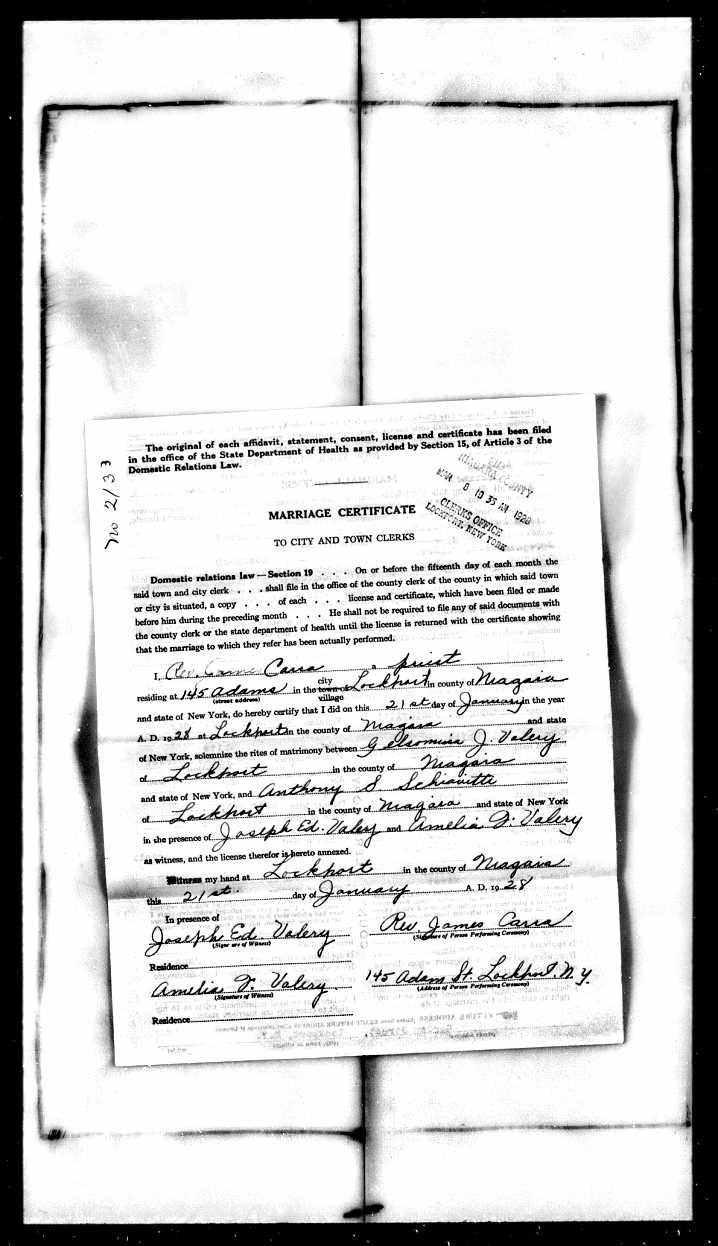 The original of each affidavit, statement, consent, license and certificate has been filed
in the office of the State Department of Health as provided by Section 15, of Article 3 of the
Domestic Relations Law.
No 2133
NIAGARA COUNTY
MAR 8 10 35 AM 1928
CLERKS OFFICE
LOCKPORT, NEW YORK
MARRIAGE CERTIFICATE
TO CITY AND TOWN CLERKS
Domestic relations law — Section 19 . . . On or before the fifteenth day of each month the
said town and city clerk . . . shall file in the office of the county clerk of the county in which said town
or city is situated, a copy . . . of each . . . license and certificate, which have been filed or made
before him during the preceding month . . . He shall not be required to file any of said documents with
the county clerk or the state department of health until the license is returned with the certificate showing
that the marriage to which they refer has been actually performed.
I, Rev. Carra a priest
residing at 145 Adams in the city town or village Lockport in county of Niagara
(street address)
and state of New York, do hereby certify that I did on this 21st day of January in the year
A. D. 1928 at Lockport in the county of Niagara and state
of New York, solemnize the rites of matrimony between Gelsomina J. Valery
of Lockport in the county of Niagara
and state of New York, and Anthony S Schiavitti
of Lockport in the county of Niagara and state of New York
in the presence of Joseph Ed. Valery and Amelia F. Valery
as witness, and the license therefor is hereto annexed.
Witness my hand at Lockport in the county of Niagara
this 21st day of January A. D. 1928
In presence of
Joseph Ed. Valery Rev. James Carra
(Signature of Witness) (Signature of Person Performing Ceremony)
Residence
Amelia F. Valery 145 Adam St. Lockport. N.Y.
(Signature of Witness) (Address of Person Performing Ceremony)
Residence